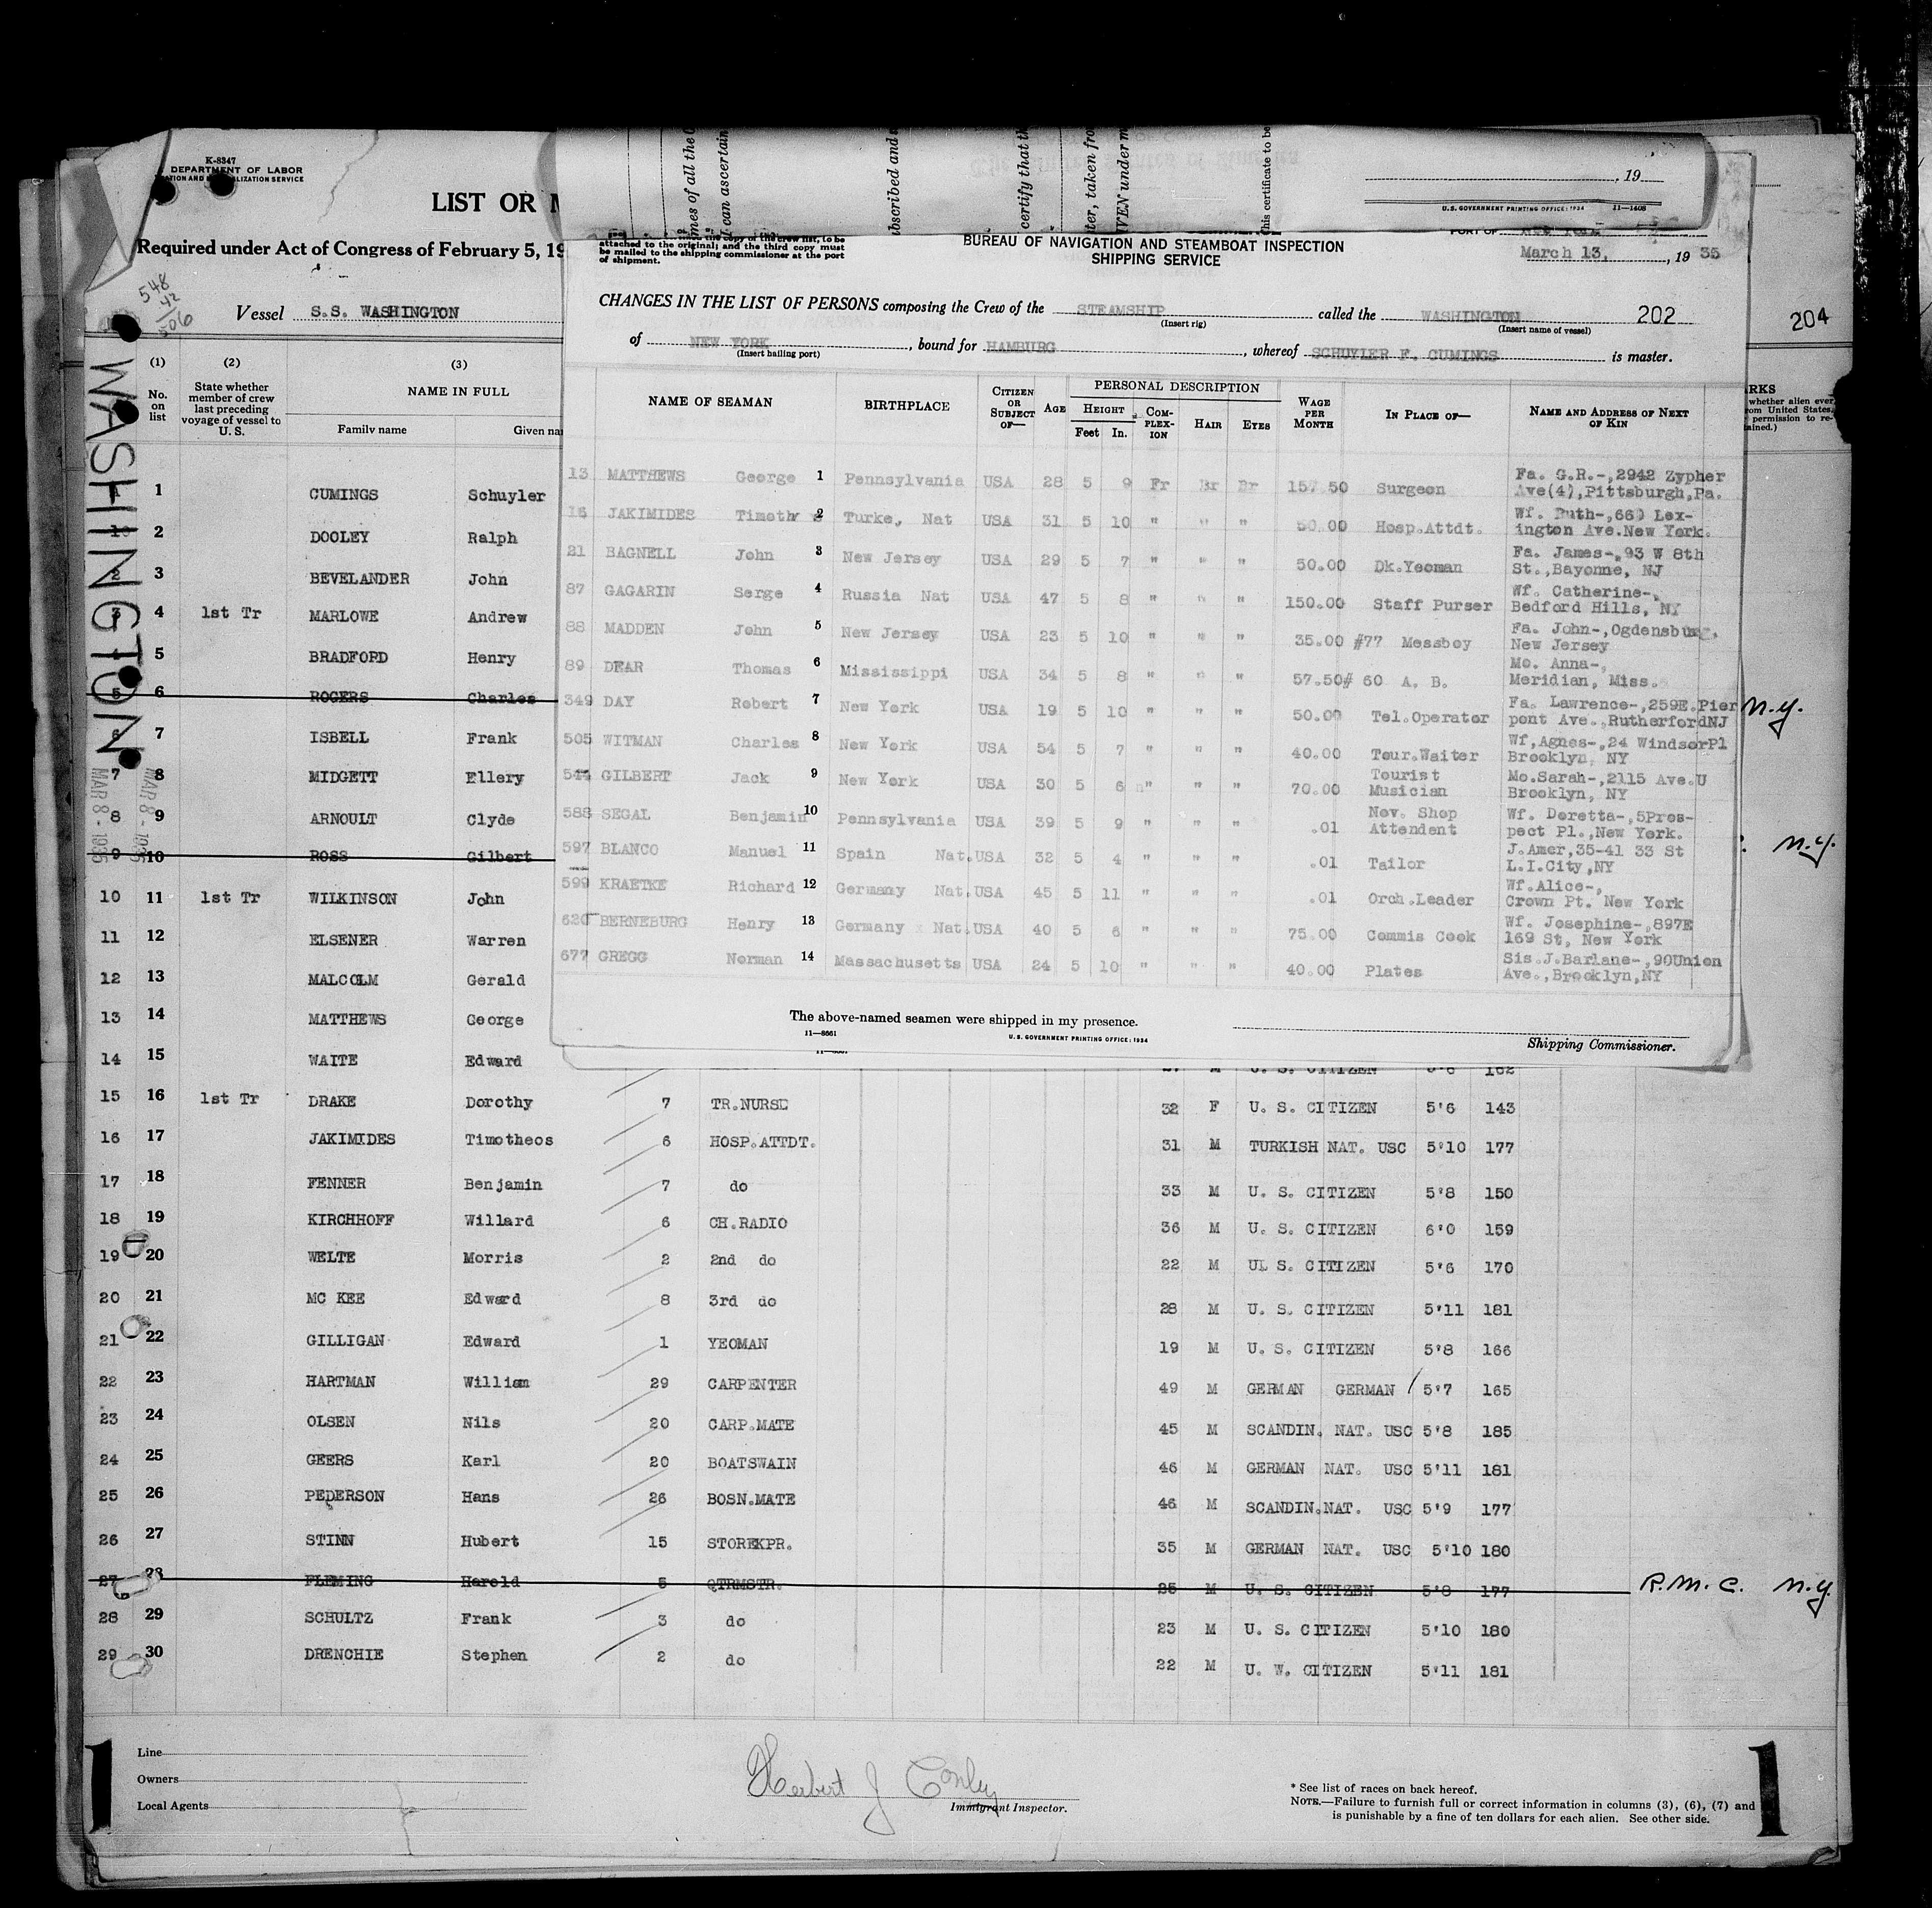 K-8347
DEPARTMENT OF LABOR
LIST OR
Required under Act of Congress of February 5, 19
548
42
506
Vessel S.S. WASHINGTON
WASHINGTON
MAR 8 - 1935
MAR 8 - 1935
(1) (2) (3)
No. on list
State whether member of crew last preceding voyage of vessel to U. S.
NAME IN FULL
Family name Given na
1 CUMINGS Schuyler
2 DOOLEY Ralph
2 3 BEVELANDER John
3 4 1st Tr MARLOWE Andrew
5 BRADFORD Henry
5 6 ROGERS Charles N.Y.
6 7 ISBELL Frank
7 8 MIDGETT Ellery
8 9 ARNOULT Clyde
9 10 ROSS Gilbert N.Y.
10 11 1st Tr WILKINSON John
11 12 ELSENER Warren
12 13 MALCOLM Gerald
13 14 MATTHEWS George
14 15 WAITE Edward
mes of all the
I can ascertain
bscribed and
certify that th
ter, taken fro
VEN under m
his certificate to be
, 19
U. S. GOVERNMENT PRINTING OFFICE: 1934 11—1408
attached to the original; and the third copy must
be mailed to the shipping commissioner at the port
of shipment.
BUREAU OF NAVIGATION AND STEAMBOAT INSPECTION
SHIPPING SERVICE
PORT OF
March 13, , 19 35
CHANGES IN THE LIST OF PERSONS composing the Crew of the STEAMSHIP called the WASHINGTON 202
(Insert rig) (Insert name of vessel)
204
of NEW YORK , bound for HAMBURG , whereof SCHUYLER F. CUMINGS is master.
(Insert hailing port)
NAME OF SEAMAN BIRTHPLACE CITIZEN OR SUBJECT OF— AGE PERSONAL DESCRIPTION HEIGHT Feet In. COMPLEXION HAIR EYES WAGE PER MONTH IN PLACE OF— NAME AND ADDRESS OF NEXT OF KIN
RKS
whether alien ever
rom United States,
permission to re-
tained.)
13 MATTHEWS George 1 Pennsylvania USA 28 5 9 Fr Br Br 157.50 Surgeon Fa. G.R.-,2942 Zypher
Ave(4),Pittsburgh,Pa.
16 JAKIMIDES 2 Turke, Nat USA 31 5 10 " " " 50.00 Hosp.Attdt. Wf. Ruth-,660 Lex-
ington Ave.New York.
21 BAGNELL John 3 New Jersey USA 29 5 7 " " " 50.00 Dk.Yeoman Fa. James-,93 W 8th
St.,Bayonne, NJ
87 GAGARIN Serge 4 Russia Nat USA 47 5 8 " " " 150.00 Staff Purser Wf. Catherine-,
Bedford Hills, NY
88 MADDEN John 5 New Jersey USA 23 5 10 " " " 35.00 #77 Messboy Fa. John-,Ogdensburg,
New Jersey
89 DEAR Thomas 6 Mississippi USA 34 5 8 " " " 57.50# 60 A. B. Mo. Anna-,
Meridian, Miss.
349 DAY Robert 7 New York USA 19 5 10 " " " 50.00 Tel.Operator Fa. Lawrence-,259E.Pier
pont Ave.,RutherfordNJ
505 WITMAN Charles 8 New York USA 54 5 7 " " " 40.00 Tour.Waiter Wf,Agnes-,24 WindsorPl
Brooklyn, NY
544 GILBERT Jack 9 New York USA 30 5 6 " " " 70.00 Tourist Musician Mo.Sarah-,2115 Ave.U
Brooklyn, NY
588 SEGAL Benjamin 10 Pennsylvania USA 39 5 9 " " " .01 Nov. Shop Attendent Wf. Doretta-,5Pros-
pect Pl.,New York.
597 BLANCO Manuel 11 Spain Nat.USA 32 5 4 " " " .01 Tailor J.Amer,35-41 33 St
L.I.City,NY
599 KRAETKE Richard 12 Germany Nat.USA 45 5 11 " " " .01 Orch.Leader Wf.Alice-,
Crown Pt. New York
620 BERNEBURG Henry 13 Germany Nat.USA 40 5 6 " " " 75.00 Commis Cook Wf. Josephine-,897E
169 St, New York
677 GREGG Norman 14 Massachusetts USA 24 5 10 " " " 40.00 Plates Sis.J.Barlane-,90Union
Ave.,Brooklyn,NY
The above-named seamen were shipped in my presence.
11—8661 U. S. GOVERNMENT PRINTING OFFICE: 1934
Shipping Commissioner.
15 16 1st Tr DRAKE Dorothy 7 TR.NURSE 32 F U. S. CITIZEN 5'6 143
16 17 JAKIMIDES Timotheos 6 HOSP.ATTDT. 31 M TURKISH NAT. USC 5'10 177
17 18 FENNER Benjamin 7 do 33 M U. S. CITIZEN 5'8 150
18 19 KIRCHHOFF Willard 6 CH.RADIO 36 M U. S. CITIZEN 6'0 159
19 20 WELTE Morris 2 2nd do 22 M UL S. CITIZEN 5'6 170
20 21 MC KEE Edward 8 3rd do 28 M U. S. CITIZEN 5'11 181
21 22 GILLIGAN Edward 1 YEOMAN 19 M U. S. CITIZEN 5'8 166
22 23 HARTMAN William 29 CARPENTER 49 M GERMAN GERMAN 5'7 165
23 24 OLSEN Nils 20 CARP.MATE 45 M SCANDIN. NAT. USC 5'8 185
24 25 GEERS Karl 20 BOATSWAIN 46 M GERMAN NAT. USC 5'11 181
25 26 PEDERSON Hans 26 BOSN.MATE 46 M SCANDIN.NAT. USC 5'9 177
26 27 STINN Hubert 15 STOREKPR. 35 M GERMAN NAT. USC 5'10 180
27 28 FLEMING Harold 5 QTRMSTR. 25 M U. S. CITIZEN 5'8 177 R.M.C. N.Y.
28 29 SCHULTZ Frank 3 do 23 M U. S. CITIZEN 5'10 180
29 30 DRENCHIE Stephen 2 do 22 M U. W. CITIZEN 5'11 181
1 1
Line
Owners
Local Agents
Herbert J Conley
Immigrant Inspector.
* See list of races on back hereof.
NOTE.—Failure to furnish full or correct information in columns (3), (6), (7) and
is punishable by a fine of ten dollars for each alien. See other side.